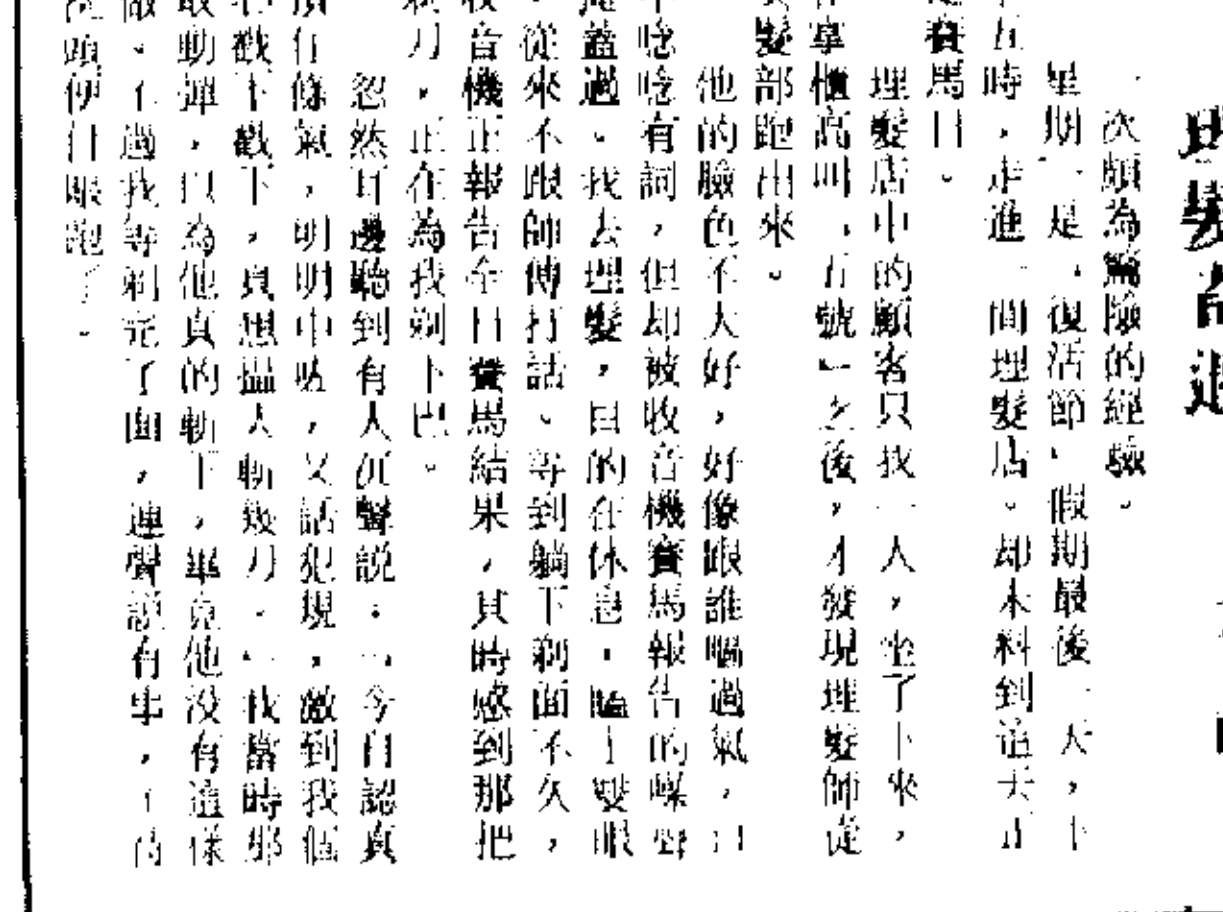 一次頗為驚險的經驗。
星期一是「復活節」假期最後一天，下
午五時，走進一間理髮店。却未料到這天正
是賽馬日。
理髮店中的顧客只我一人，坐了下來，
在掌櫃高叫「五號」之後，才發現理髮師從
髮部跑出來。
他的臉色不大好，好像跟誰嘔過氣，口
中唸唸有詞，但却被收音機賽馬報告的嘩聲
掩蓋過。我去理髮，目的在休息，瞌上雙眼
，從來不跟師傅打話。等到躺下剃面不久，
收音機正報告全日賽馬結果，其時感到那把
剃刀，正在為我剃下巴。
忽然耳邊聽到有人沉聲說：「今自認真
頂佢條氣，明明中咗，又話犯規，激到我個
戳下戳下，真想搵人斬幾刀。」我當時那
敢動彈，以為他真的斬下，畢竟他没有這樣
做。不過我等剃完了面，連聲説有事，
頭伊目眼跑了。